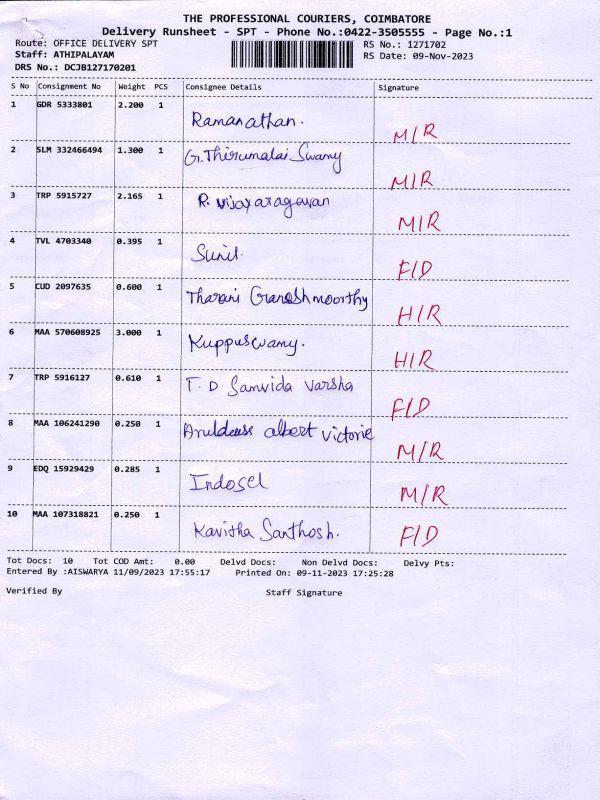 THE PROFESSIONAL COURIERS, COIMBATORE
Delivery Runsheet - SPT - Phone No.:0422-3505555 - Page No.:1
Route: OFFICE DELIVERY SPT RS No.: 1271702
Staff: ATHIPALAYAM RS Date: 09-Nov-2023
DRS No.: DCJB127170201
S No Consignment No Weight PCS Consignee Details Signature
1 GDR 5333801 2.200 1
Ramanathan. M/R
2 SLM 332466494 1.300 1
G.Thirumalai Swamy M/R
3 TRP 5915727 2.165 1
R. Vijayaragavan M/R
4 TVL 4703340 0.395 1
Sunil. F/D
5 CUD 2097635 0.600 1
Tharani Ganeshmoorthy H/R
6 MAA 570608925 3.000 1
Kuppuswamy. H/R
7 TRP 5916127 0.610 1
T. D Samvida varsha F/D
8 MAA 106241290 0.250 1
albert victorie M/R
9 EDQ 15929429 0.285 1
Indosel M/R
10 MAA 107318821 0.250 1
Kavitha Santhosh. F/D
Tot Docs: 10 Tot COD Amt: 0.00 Delvd Docs: Non Delvd Docs: Delvy Pts:
Entered By :AISWARYA 11/09/2023 17:55:17 Printed On: 09-11-2023 17:25:28
Verified By Staff Signature